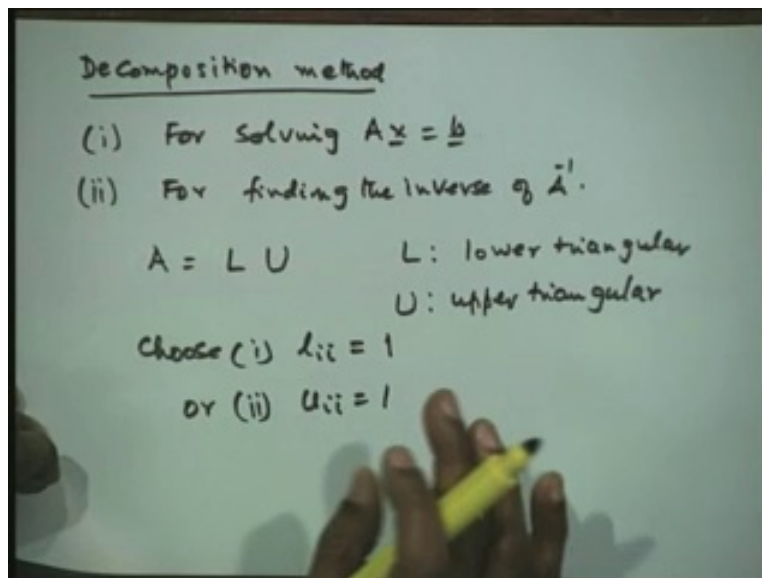 Decomposition method
(i) For solving A x = b
(ii) For finding the inverse of A⁻¹.
A = L U L : lower triangular
U : upper triangular
Choose (i) lii = 1
or (ii) uii = 1